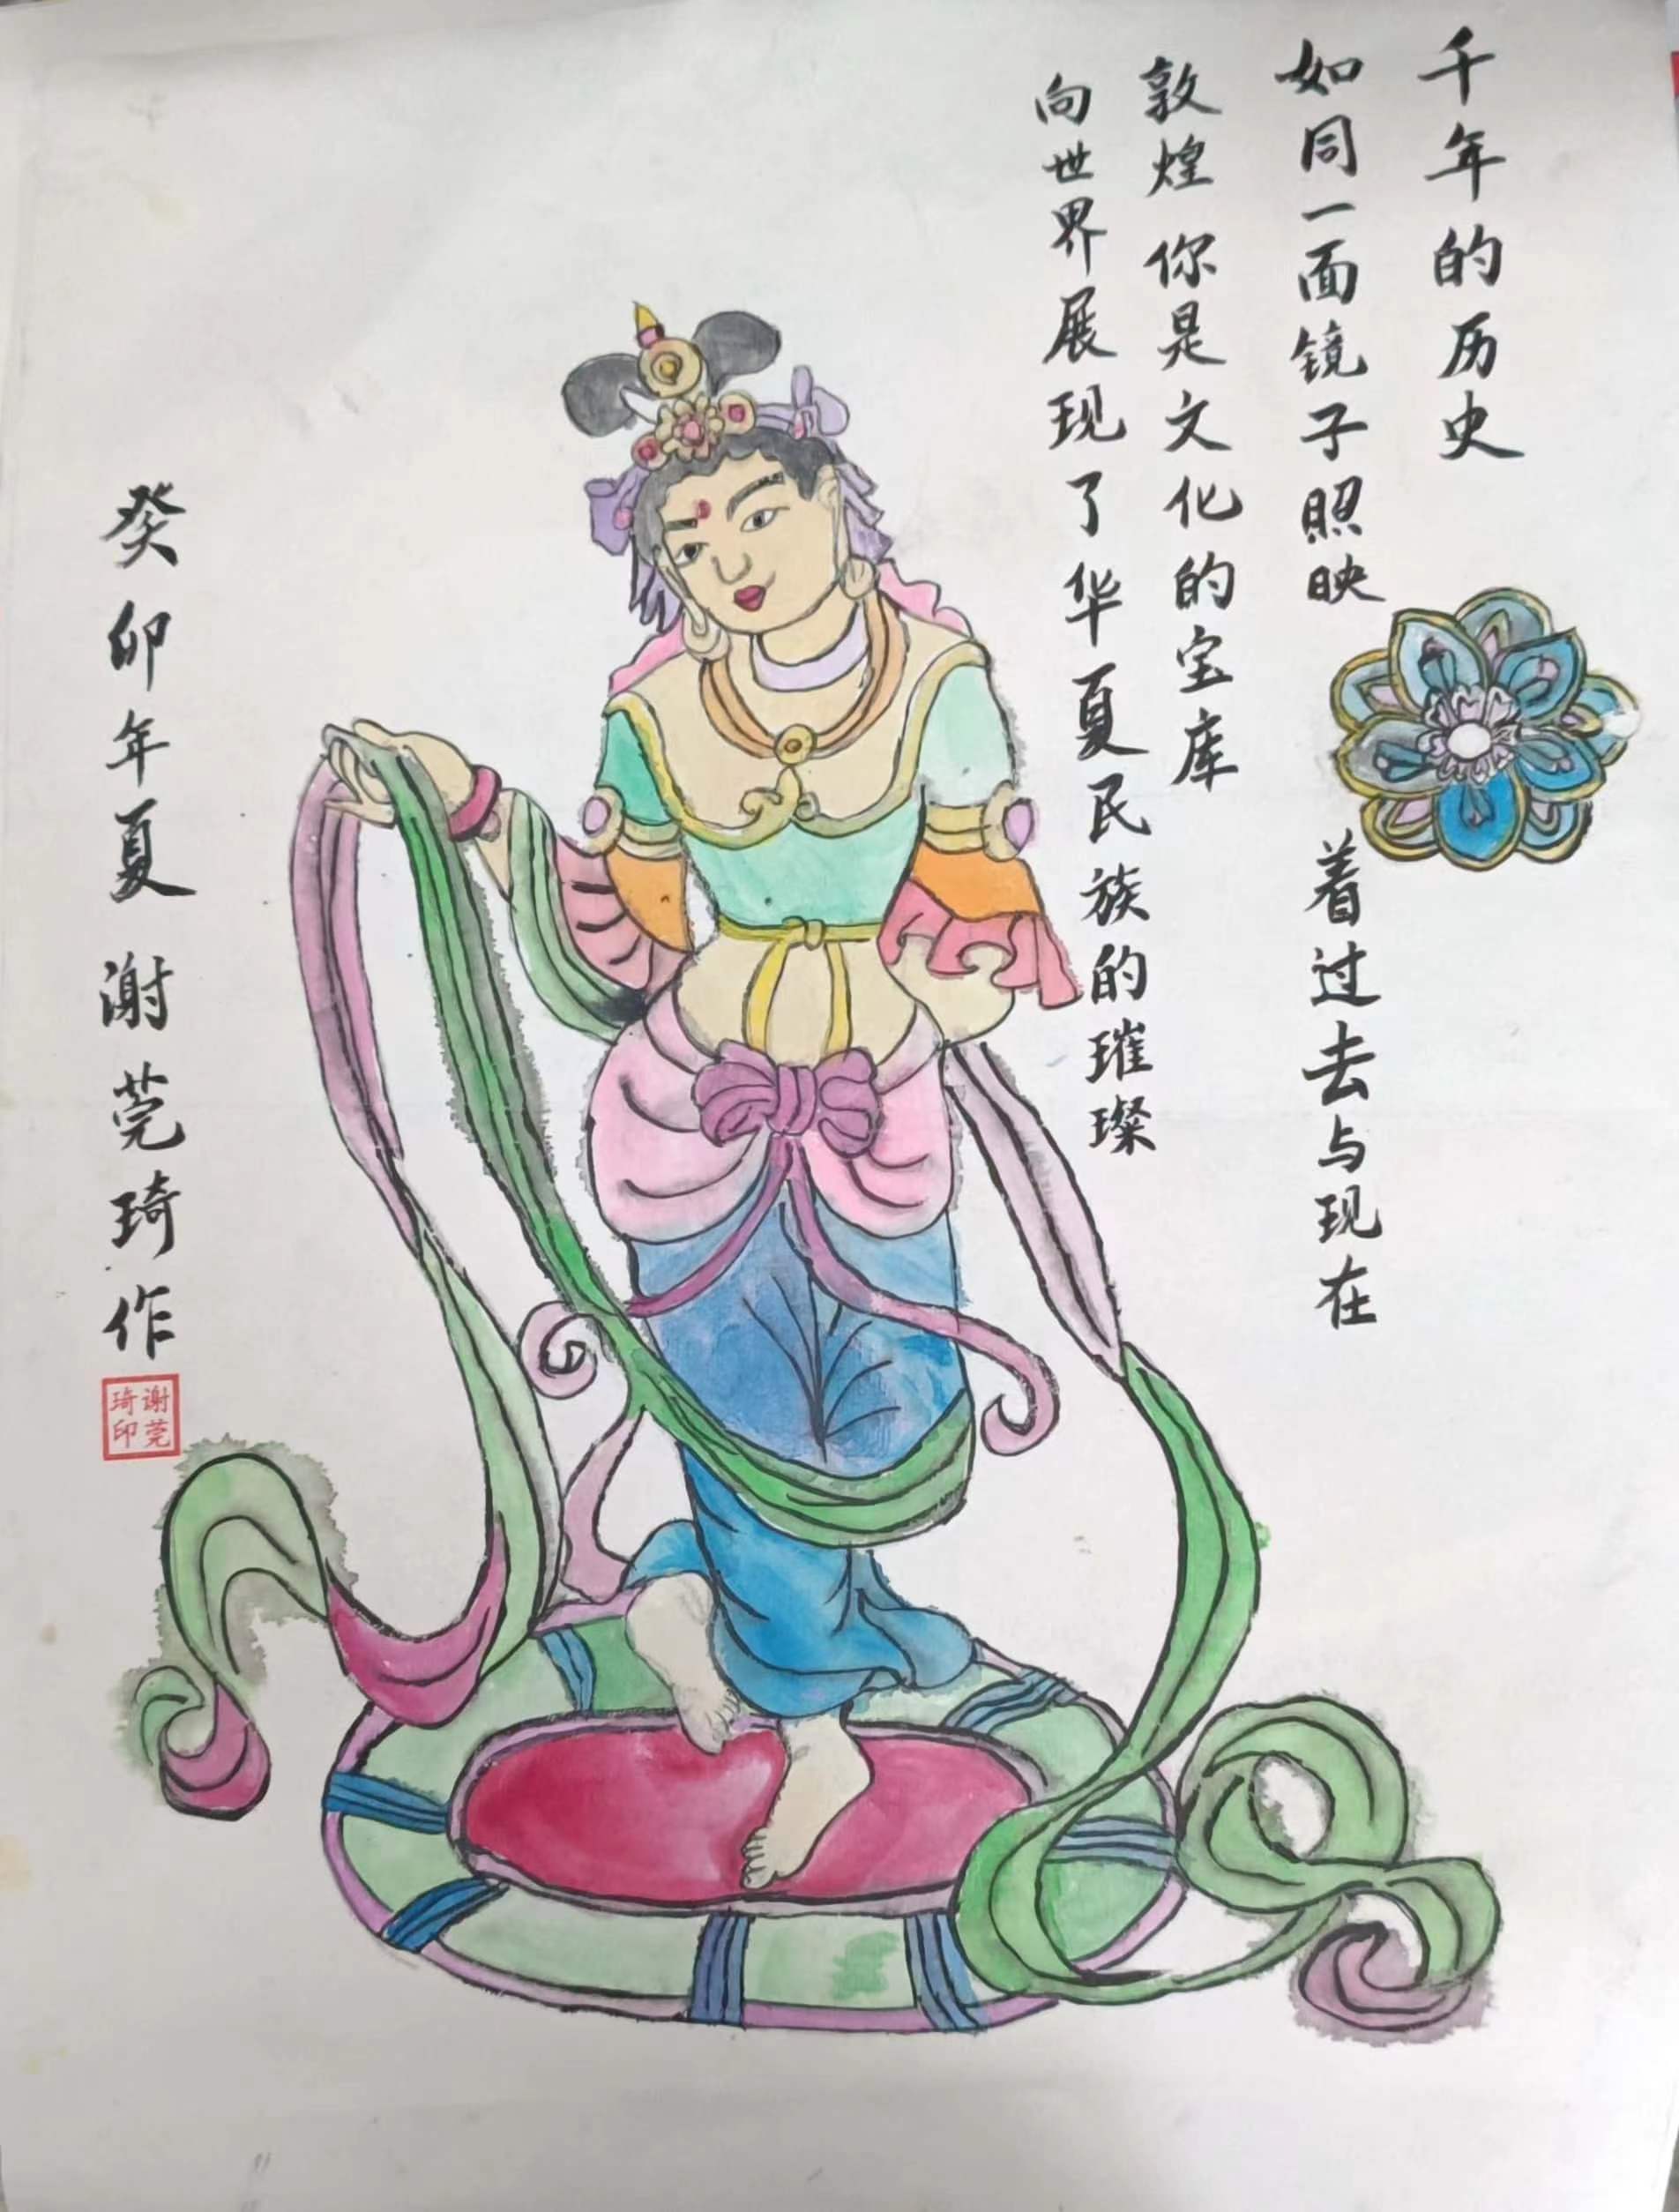 千年的历史
如同一面镜子照映着过去与现在
敦煌 你是文化的宝库
向世界展现了华夏民族的璀璨
癸卯年夏 谢莞琦作
谢莞
琦印